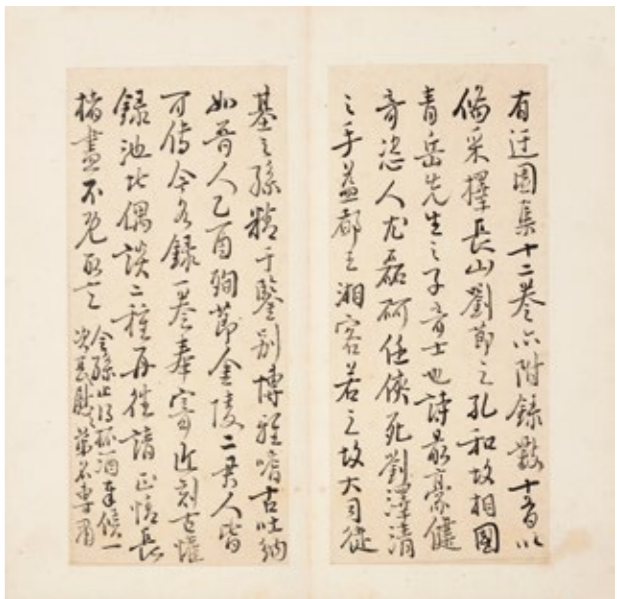 有迂園集十二卷亦附錄數十首以
備采擇長山劉節之孔和故相國
青岳先生之子奇士也詩最豪健
奇恣人尤磊砢任俠死劉澤清
之手益都王湘客若之故大司徒
基之孫精于鑒別博雅嗜古吐納
如晉人乙酉殉節金陵二君人皆
可傳今各錄一卷奉寄近刻古懽
錄池北偶談二種再往請正情長
楮盡不
令孫
弟名專肅